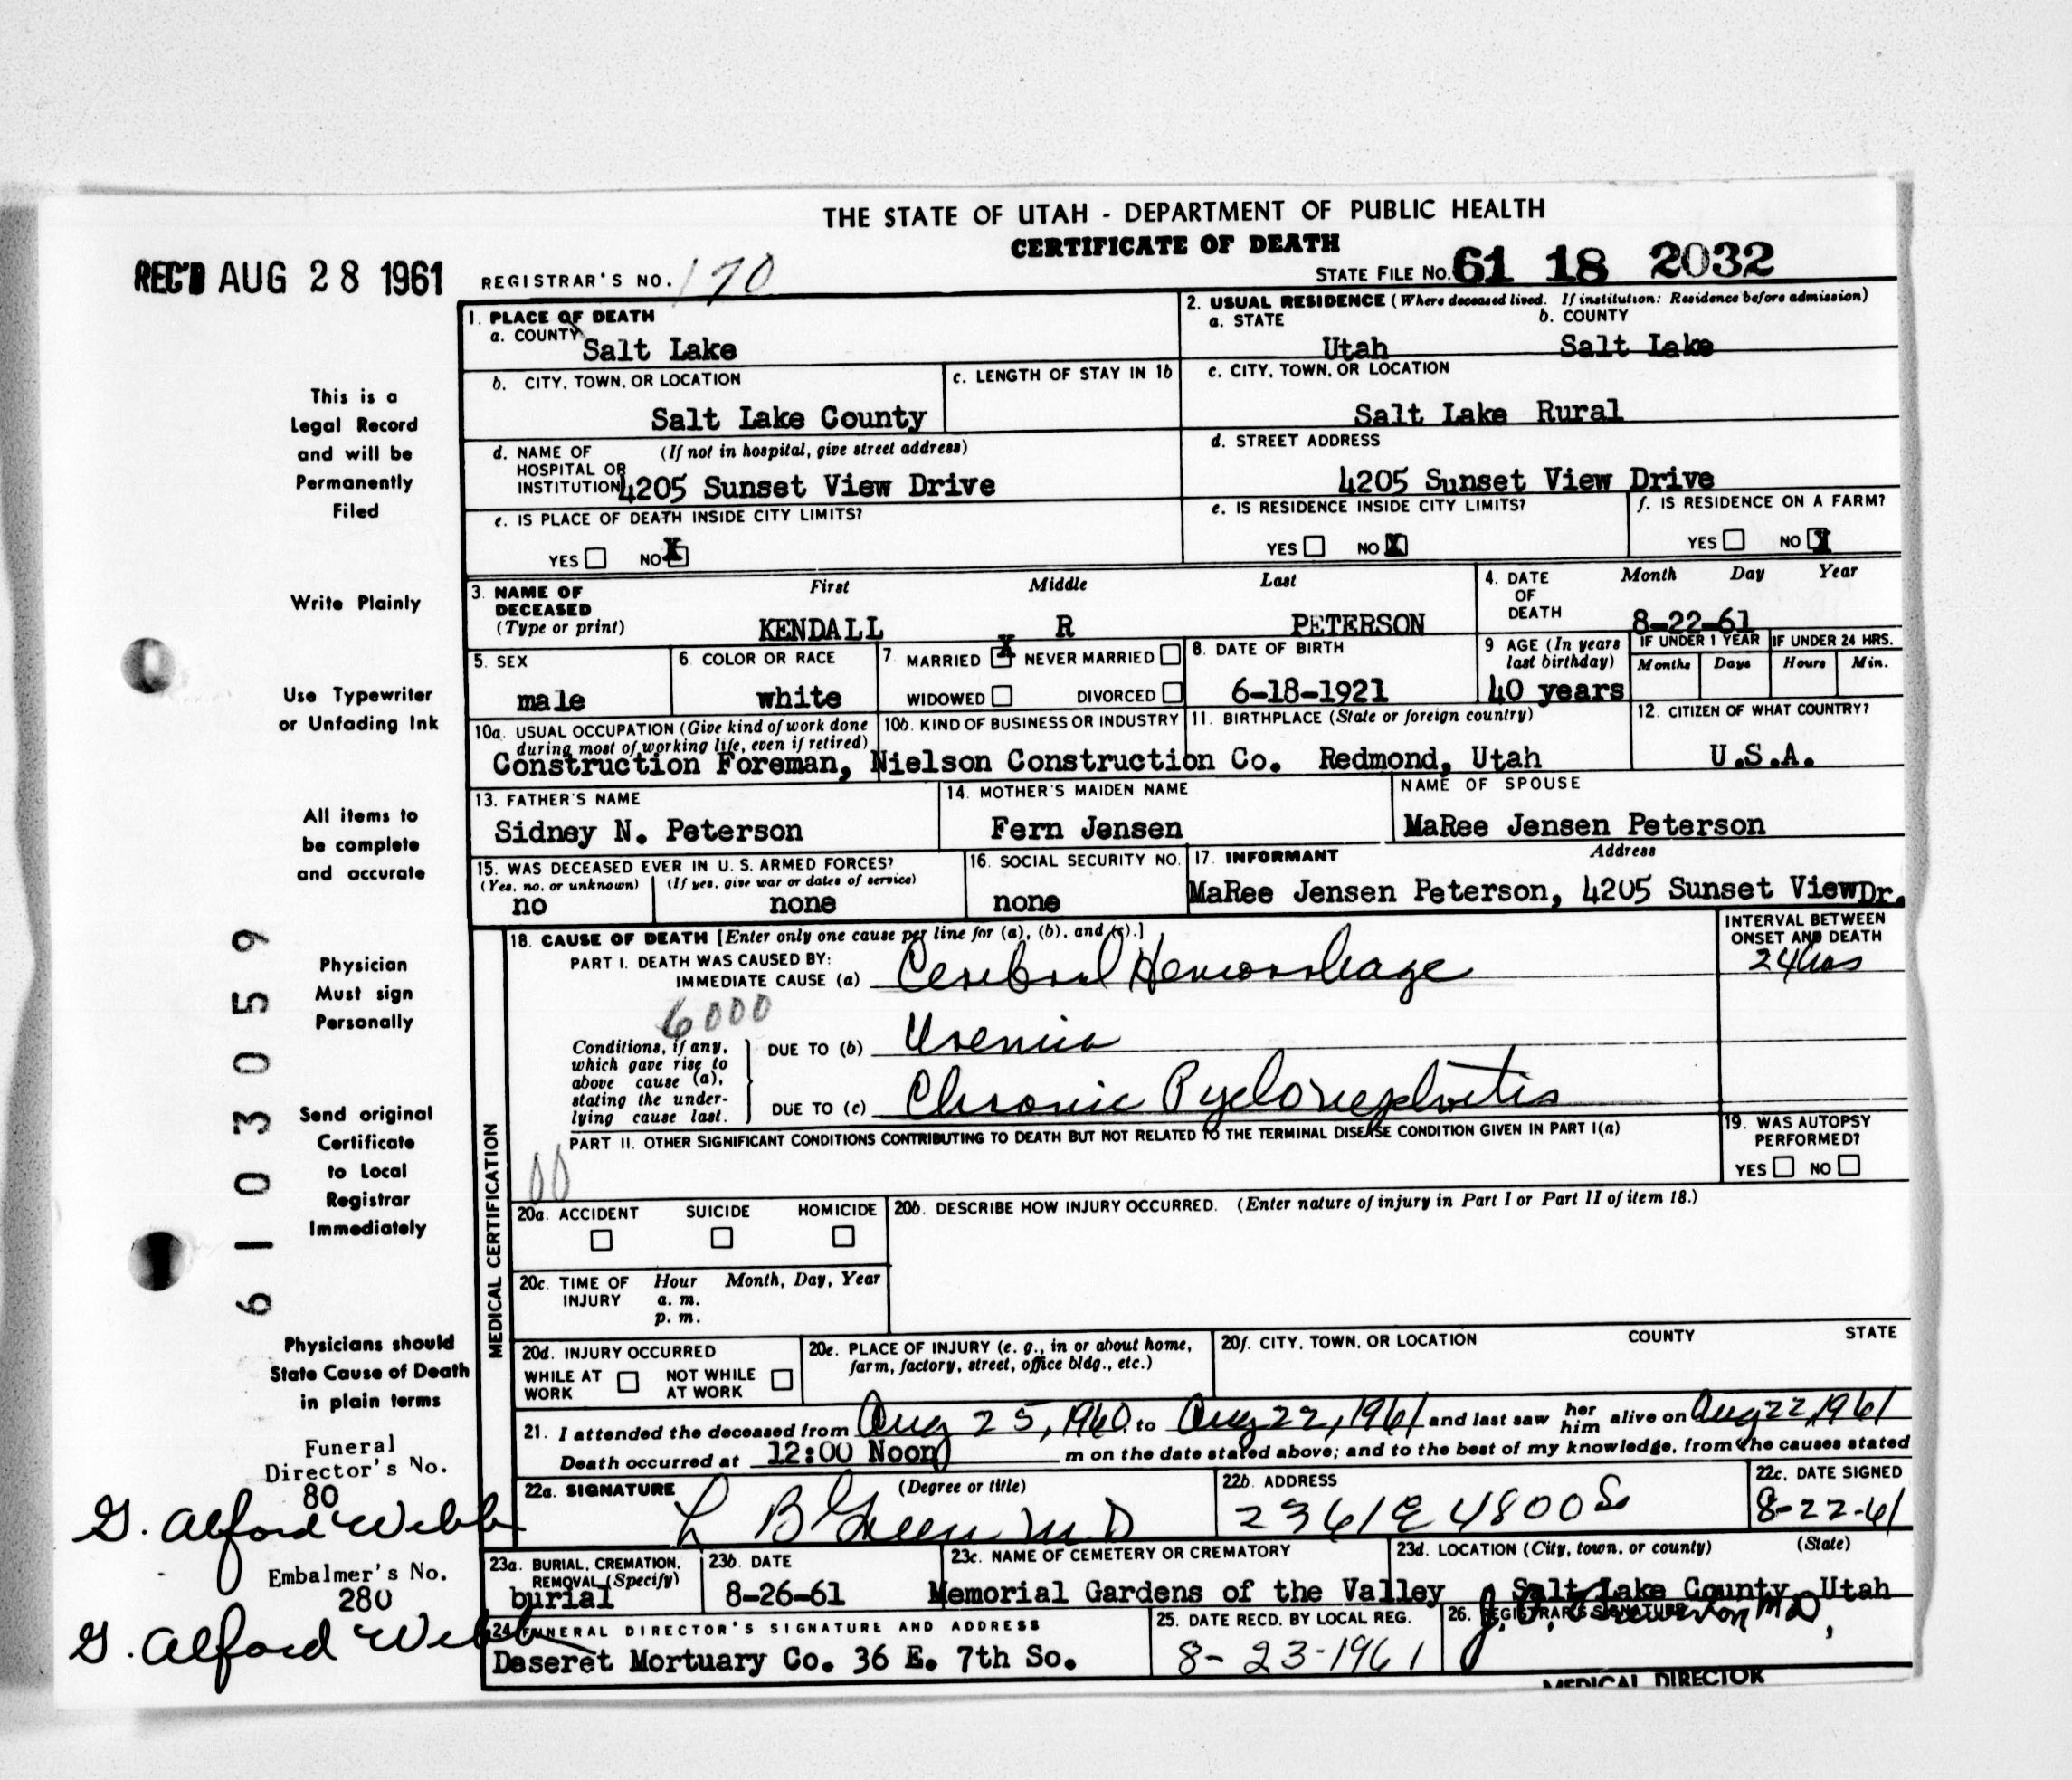 THE STATE OF UTAH - DEPARTMENT OF PUBLIC HEALTH
CERTIFICATE OF DEATH
REC'D AUG 28 1961
REGISTRAR'S NO. 170
STATE FILE NO. 61 18 2032
1. PLACE OF DEATH
a. COUNTY
Salt Lake
2. USUAL RESIDENCE (Where deceased lived. If institution: Residence before admission)
a. STATE b. COUNTY
Utah Salt Lake
b. CITY, TOWN, OR LOCATION
Salt Lake County
c. LENGTH OF STAY IN 1b
c. CITY, TOWN, OR LOCATION
Salt Lake Rural
d. NAME OF (If not in hospital, give street address)
HOSPITAL OR
INSTITUTION 4205 Sunset View Drive
d. STREET ADDRESS
4205 Sunset View Drive
e. IS PLACE OF DEATH INSIDE CITY LIMITS?
YES NO X
e. IS RESIDENCE INSIDE CITY LIMITS?
YES NO X
f. IS RESIDENCE ON A FARM?
YES NO X
3. NAME OF
DECEASED
(Type or print)
First Middle Last
KENDALL R PETERSON
4. DATE
OF
DEATH
Month Day Year
8-22-61
5. SEX
male
6. COLOR OR RACE
white
7. MARRIED X NEVER MARRIED
WIDOWED DIVORCED
8. DATE OF BIRTH
6-18-1921
9 AGE (In years
last birthday)
40 years
IF UNDER 1 YEAR IF UNDER 24 HRS.
Months Days Hours Min.
10a. USUAL OCCUPATION (Give kind of work done
during most of working life, even if retired)
10b. KIND OF BUSINESS OR INDUSTRY
11. BIRTHPLACE (State or foreign country)
Construction Foreman, Nielson Construction Co. Redmond, Utah
12. CITIZEN OF WHAT COUNTRY?
U.S.A.
13. FATHER'S NAME
Sidney N. Peterson
14. MOTHER'S MAIDEN NAME
Fern Jensen
NAME OF SPOUSE
MaRee Jensen Peterson
15. WAS DECEASED EVER IN U. S. ARMED FORCES?
(Yes, no, or unknown) (If yes, give war or dates of service)
no none
16. SOCIAL SECURITY NO.
none
17. INFORMANT Address
MaRee Jensen Peterson, 4205 Sunset View Dr.
MEDICAL CERTIFICATION
18. CAUSE OF DEATH [Enter only one cause per line for (a), (b), and (c).]
PART I. DEATH WAS CAUSED BY:
IMMEDIATE CAUSE (a) Cerebral Hemorrhage
INTERVAL BETWEEN
ONSET AND DEATH
24 hrs
6000
Conditions, if any,
which gave rise to
above cause (a),
stating the under-
lying cause last.
DUE TO (b) Uremia
DUE TO (c) Chronic Pyelonephritis
PART II. OTHER SIGNIFICANT CONDITIONS CONTRIBUTING TO DEATH BUT NOT RELATED TO THE TERMINAL DISEASE CONDITION GIVEN IN PART I(a)
00
19. WAS AUTOPSY
PERFORMED?
YES NO
20a. ACCIDENT SUICIDE HOMICIDE
20b. DESCRIBE HOW INJURY OCCURRED. (Enter nature of injury in Part I or Part II of item 18.)
20c. TIME OF Hour Month, Day, Year
INJURY a. m.
p. m.
20d. INJURY OCCURRED
WHILE AT WORK NOT WHILE AT WORK
20e. PLACE OF INJURY (e. g., in or about home,
farm, factory, street, office bldg., etc.)
20f. CITY, TOWN, OR LOCATION COUNTY STATE
21. I attended the deceased from Aug 25, 1960 to Aug 22, 1961 and last saw her him alive on Aug 22, 1961
Death occurred at 12:00 Noon m on the date stated above; and to the best of my knowledge, from the causes stated
22a. SIGNATURE (Degree or title)
L B Green M D
22b. ADDRESS
2361 E 4800 So
22c. DATE SIGNED
8-22-61
23a. BURIAL, CREMATION,
REMOVAL (Specify)
burial
23b. DATE
8-26-61
23c. NAME OF CEMETERY OR CREMATORY
Memorial Gardens of the Valley
23d. LOCATION (City, town, or county) (State)
Salt Lake County, Utah
24. FUNERAL DIRECTOR'S SIGNATURE AND ADDRESS
Deseret Mortuary Co. 36 E. 7th So.
25. DATE RECD. BY LOCAL REG.
8-23-1961
26. REGISTRAR'S SIGNATURE
MD,
MEDICAL DIRECTOR
This is a
Legal Record
and will be
Permanently
Filed
Write Plainly
Use Typewriter
or Unfading Ink
All items to
be complete
and accurate
Physician
Must sign
Personally
Send original
Certificate
to Local
Registrar
Immediately
Physicians should
State Cause of Death
in plain terms
Funeral
Director's No.
80
G. Alford Webb
Embalmer's No.
280
G. Alford Webb
6103059